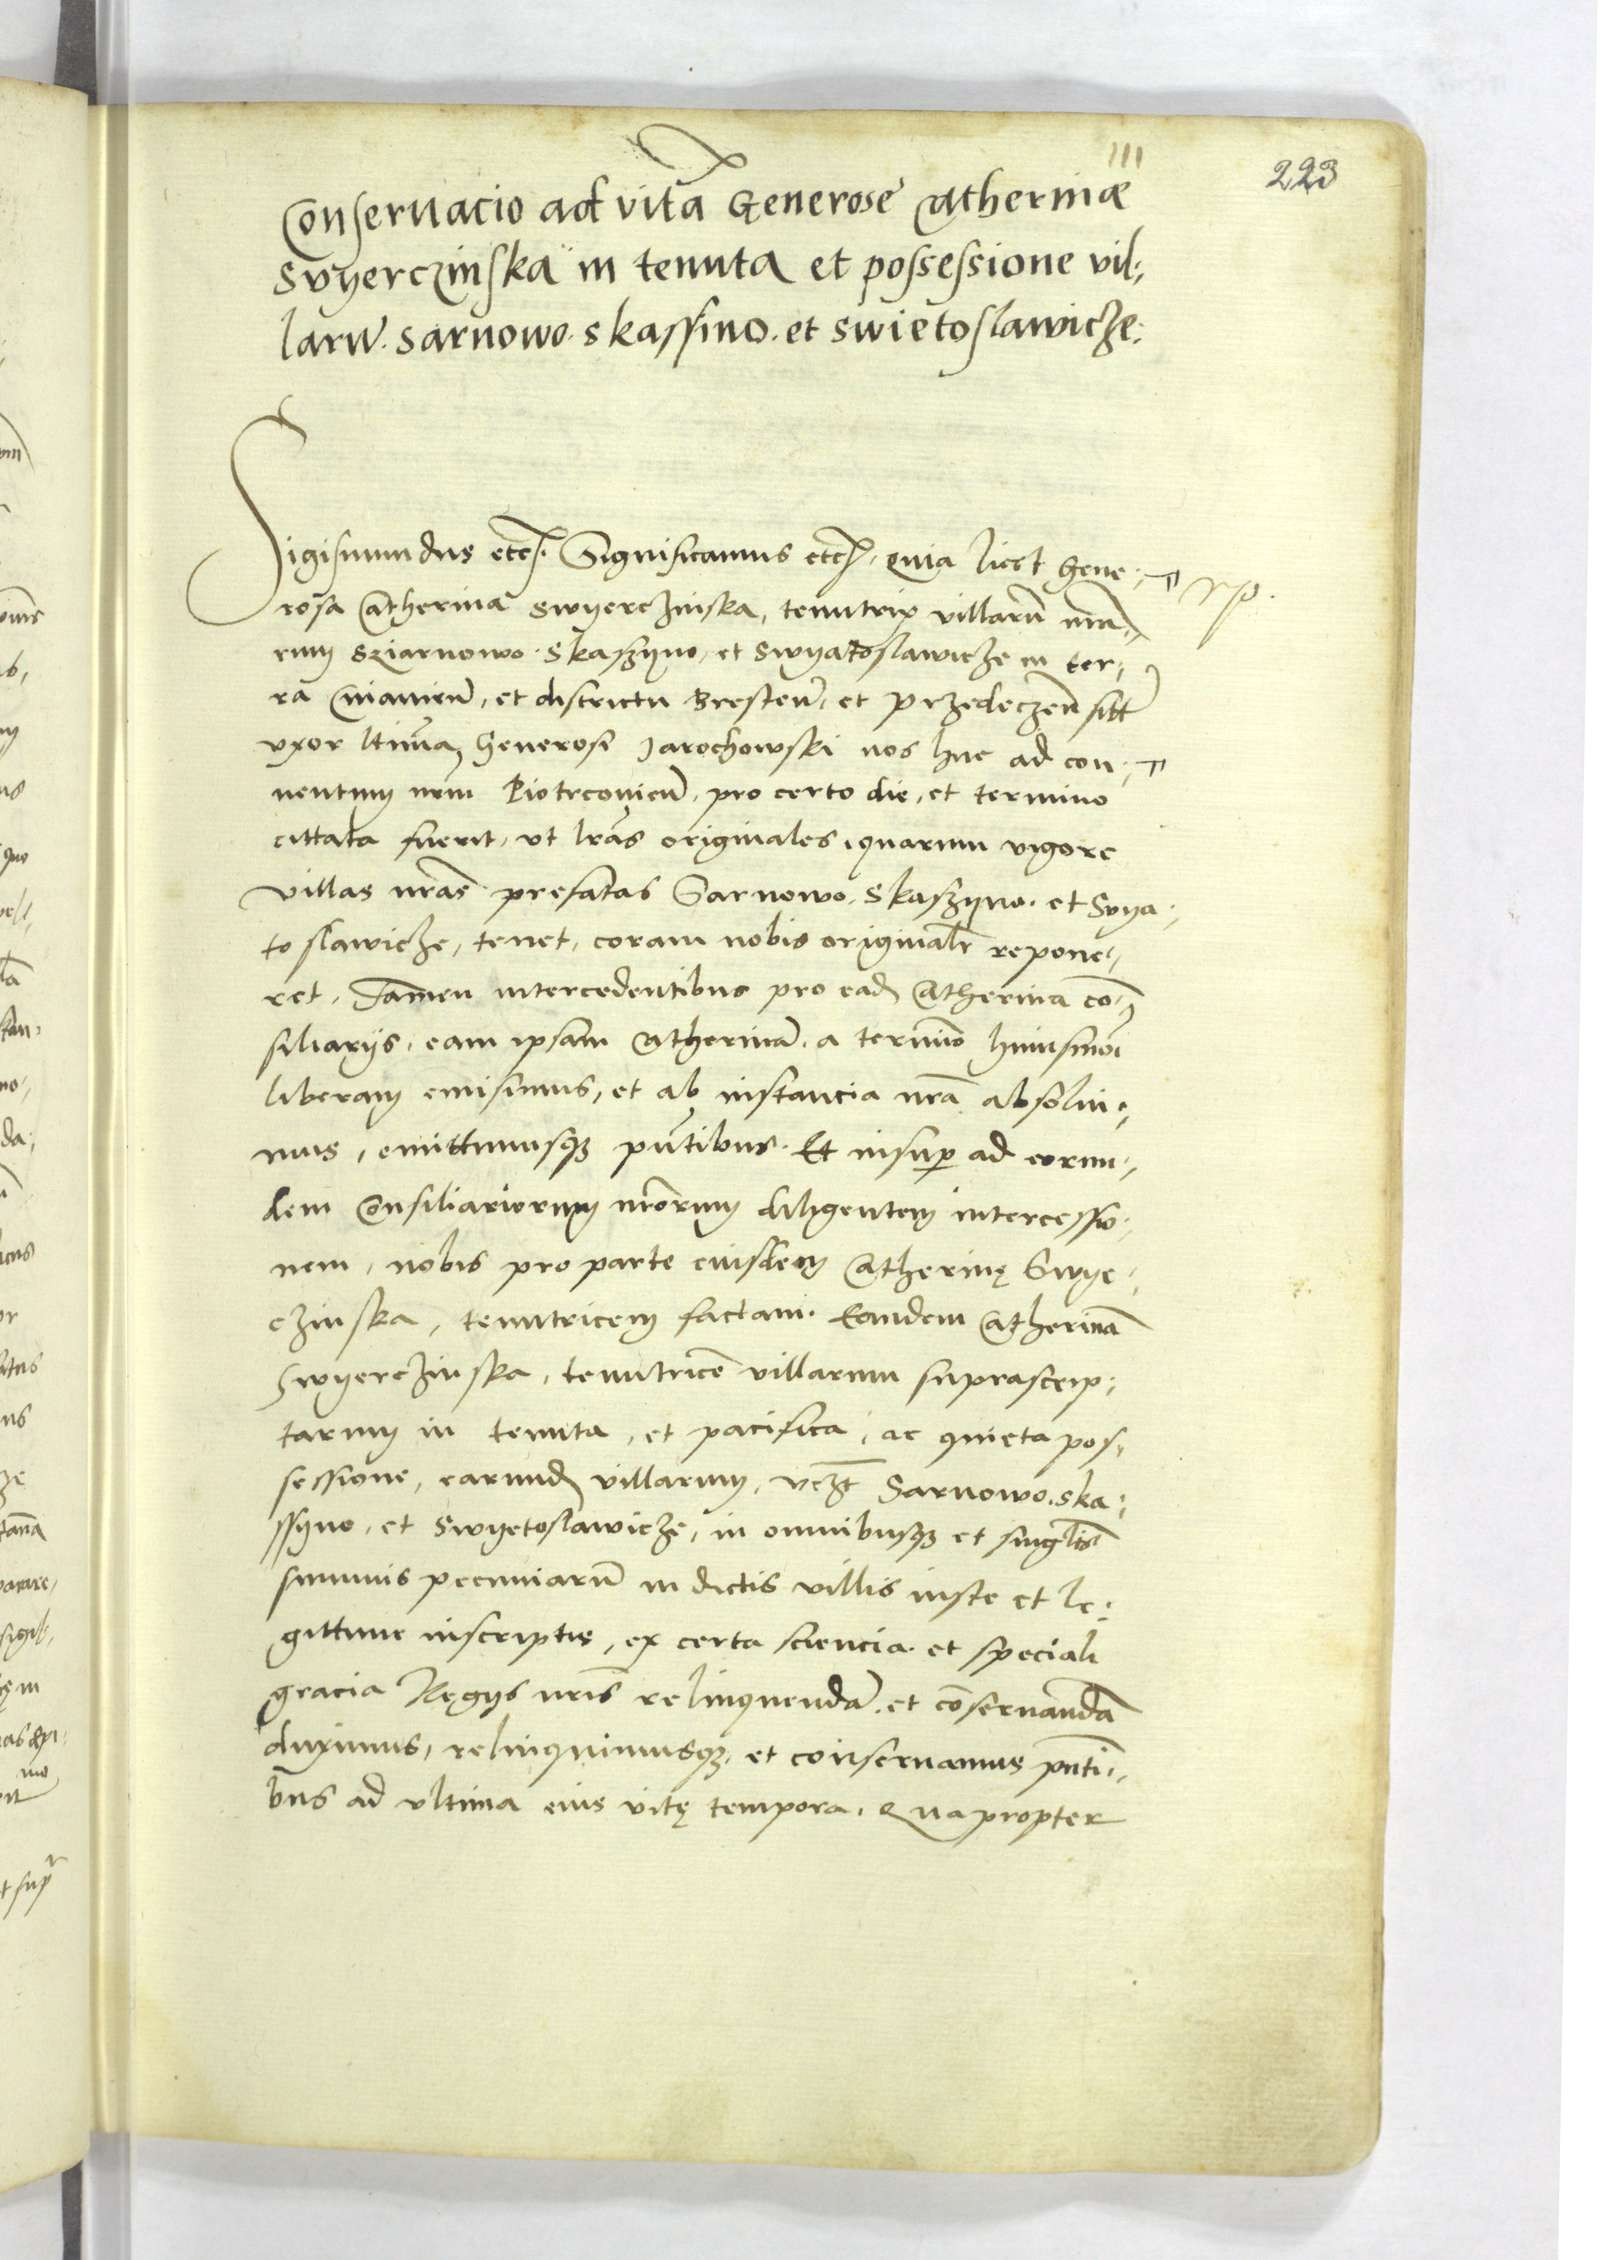 111
223
Conseruacio ad vitã Generose Catherinæ
Svyerczinska in tenuta et possessione vil:
larũ. Sarnowo. Skassino. et Swietoslawicze:
Sigismundus etc. Significamus etc. Quia licet Gene:
rosa Catherina Swyerczinska, tenutrix villarũ nrã:
rum Sziarnowo. Skaszyno, et Swyatoslawicze in ter:
ra Cuiauien̄, et districtu Bresten̄, et Przedeczen̄ sitt
vxor ltima Generosi Jarochowski nos huc ad con:
uentum nrm̃ Piotrcouien̄, pro certo die, et termino
cittata fuerit, vt lrãs originales, quarum vigore
villas nrãs prefatas Sarnowo. Skaszyno. et Svya:
toslawicze, tenet, coram nobis originalr repone:
ret. Tamen intercedentibus pro ead Catherina cõ:
siliarijs, eam ipsam Catherinã, a termino huiusmõi
liberam emisimus, et ab instancia nrã absolui:
mus, emittimusq₃ pñtibus. Et insup ad eorun:
dem Consiliariorum nrõrum diligentem intercessio:
nem, nobis pro parte eiusdem Catherinę Swye:
czinska, tenutricem factam. Eandem Catherinã
Swyerczinska, tenutricẽ villarum suprascrip:
tarum in tenuta, et pacifica, ac quieta pos:
sessione, earund villarum, vczt Sarnowo. Ska:
ssyno, et Swyetoslawicze, in omnibusq₃ et singlis
summis pecuniarũ in dictis villis iuste et le:
gittime inscriptis, ex certa sciencia et speciali
gracia Regijs nrĩs relinquendã, et cõseruandã
duximus, relinquimusq₃, et conseruamus pñti:
bus ad vltima eius vitę tempora. Quapropter